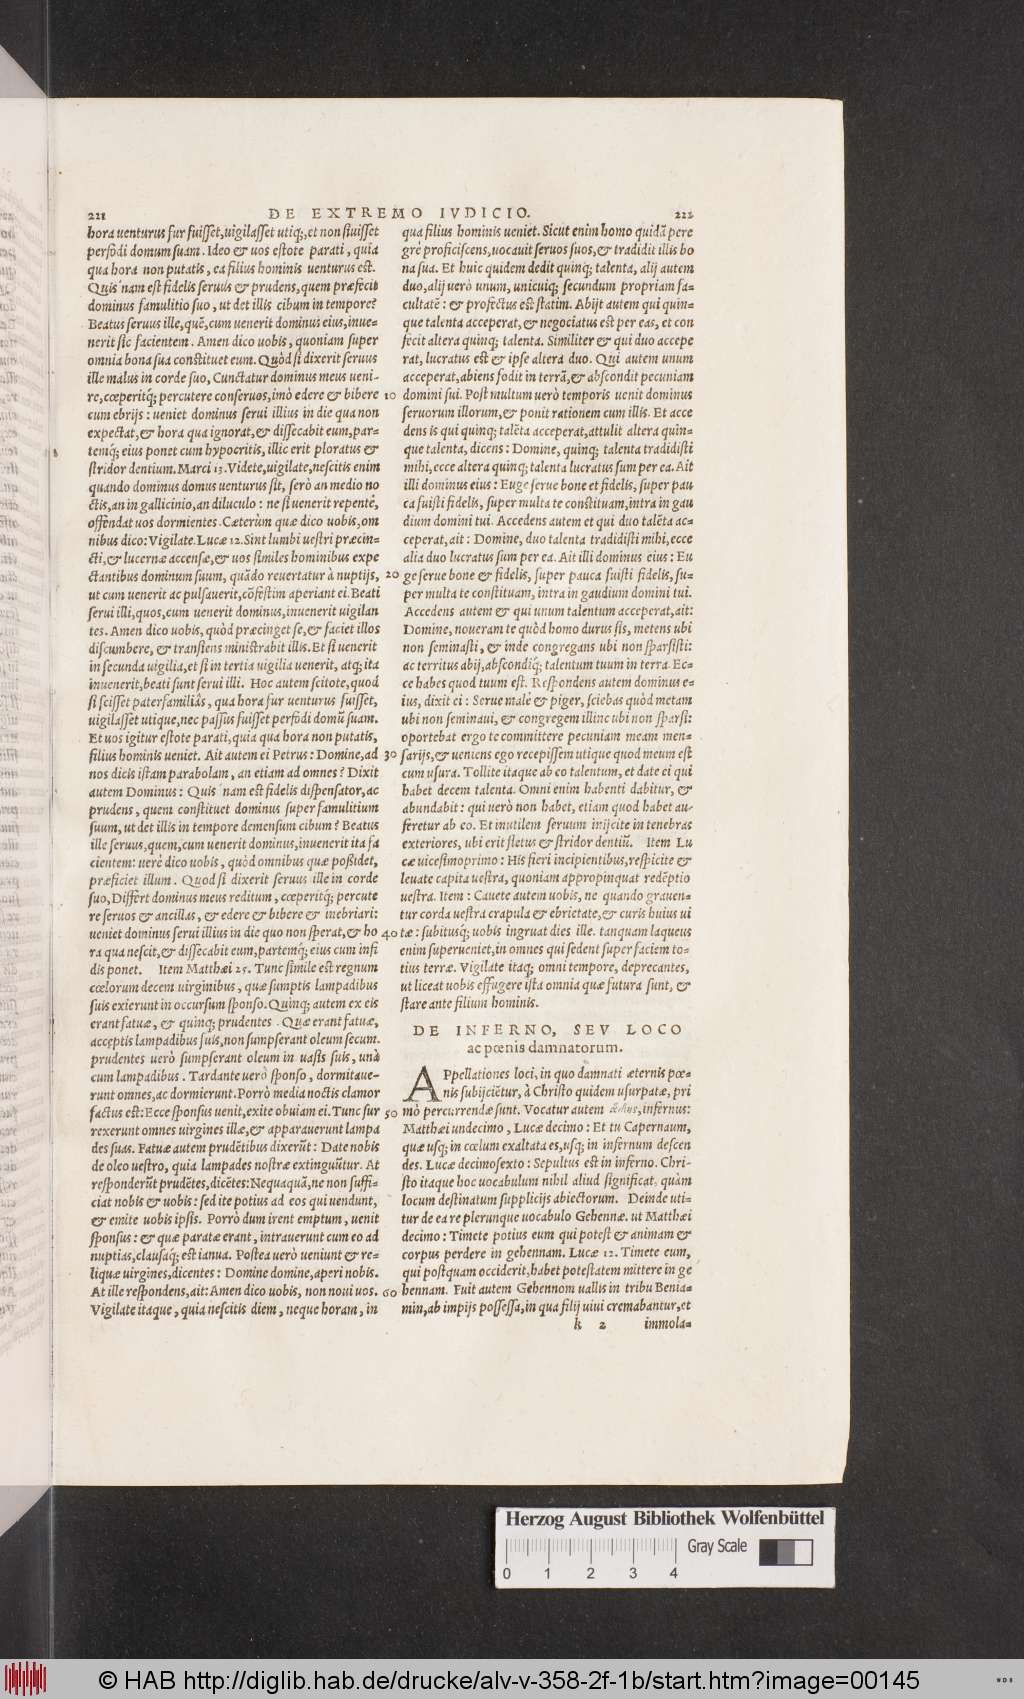 221
DE EXTREMO IVDICIO.
222
hora uenturus fur fuisset,uigilasset utiq;,et non siuisset
perfõdi domum suam. Ideo & uos estote parati, quia
qua hora non putatis, ea filius hominis uenturus est.
Quis nam est fidelis seruus & prudens,quem præfecit
dominus famulitio suo, ut det illis cibum in tempore?
Beatus seruus ille,quẽ,cum uenerit dominus eius,inue-
nerit sic facientem. Amen dico uobis, quoniam super
omnia bona sua constituet eum. Quòd si dixerit seruus
ille malus in corde suo, Cunctatur dominus meus ueni-
re,cœperitq́; percutere conseruos,imò edere & bibere
cum ebrijs: ueniet dominus serui illius in die qua non
expectat,& hora qua ignorat,& dissecabit eum,par-
temq́; eius ponet cum hypocritis, illic erit ploratus &
stridor dentium. Marci 13. Videte,uigilate,nescitis enim
quando dominus domus uenturus sit, serò an medio no
ctis,an in gallicinio,an diluculo: ne si uenerit repentè,
offendat uos dormientes. Cæterùm quæ dico uobis,om
nibus dico: Vigilate. Lucæ 12. Sint lumbi uestri præcin-
cti,& lucernæ accensæ,& uos similes hominibus expe
ctantibus dominum suum, quãdo reuertatur à nuptijs,
ut cum uenerit ac pulsauerit,cõfestim aperiant ei. Beati
serui illi,quos,cum uenerit dominus,inuenerit uigilan
tes. Amen dico uobis, quòd præcinget se,& faciet illos
discumbere, & transiens ministrabit illis. Et si uenerit
in secunda uigilia,et si in tertia uigilia uenerit, atq; ita
inuenerit,beati sunt serui illi. Hoc autem scitote,quod
si scisset paterfamiliâs, qua hora fur uenturus fuisset,
uigilasset utique,nec passus fuisset perfõdi domũ suam.
Et uos igitur estote parati,quia qua hora non putatis,
filius hominis ueniet. Ait autem ei Petrus: Domine,ad
nos dicis istam parabolam, an etiam ad omnes? Dixit
autem Dominus: Quis nam est fidelis dispensator,ac
prudens, quem constituet dominus super famulitium
suum, ut det illis in tempore demensum cibum? Beatus
ille seruus,quem,cum uenerit dominus,inuenerit ita fa
cientem: uerè dico uobis, quòd omnibus quæ possidet,
præficiet illum. Quod si dixerit seruus ille in corde
suo,Differt dominus meus reditum, cœperitq́; percute
re seruos & ancillas, & edere & bibere & inebriari:
ueniet dominus serui illius in die quo non sperat,& ho
ra qua nescit,& dissecabit eum,partemq́; eius cum infi
dis ponet. Item Matthæi 25. Tunc simile est regnum
cœlorum decem uirginibus, quæ sumptis lampadibus
suis exierunt in occursum sponso. Quinq; autem ex eis
erant fatuæ, & quinq; prudentes. Quæ erant fatuæ,
acceptis lampadibus suis,non sumpserant oleum secum.
prudentes uerò sumpserant oleum in uasis suis, unà
cum lampadibus. Tardante uerò sponso, dormitaue-
runt omnes,ac dormierunt. Porrò media noctis clamor
factus est: Ecce sponsus uenit,exite obuiam ei. Tunc sur
rexerunt omnes uirgines illæ,& apparauerunt lampa
des suas. Fatuæ autem prudẽtibus dixerũt: Date nobis
de oleo uestro, quia lampades nostræ extinguũtur. At
responderũt prudẽtes,dicẽtes: Nequaquã,ne non suffi-
ciat nobis & uobis: sed ite potius ad eos qui uendunt,
& emite uobis ipsis. Porrò dum irent emptum, uenit
sponsus: & quæ paratæ erant, intrauerunt cum eo ad
nuptias,clausaq́; est ianua. Postea uerò ueniunt & re-
liquæ uirgines,dicentes: Domine domine,aperi nobis.
At ille respondens,ait: Amen dico uobis, non noui uos.
Vigilate itaque, quia nescitis diem, neque horam, in
10
20
30
40
50
60
qua filius hominis ueniet. Sicut enim homo quidã pere
grè proficiscens,uocauit seruos suos,& tradidit illis bo
na sua. Et huic quidem dedit quinq; talenta, alij autem
duo,alij uerò unum, unicuiq; secundum propriam fa-
cultatẽ: & profectus est statim. Abijt autem qui quin-
que talenta acceperat,& negociatus est per eas, et con
fecit altera quinq; talenta. Similiter & qui duo accepe
rat, lucratus est & ipse altera duo. Qui autem unum
acceperat,abiens fodit in terrã,& abscondit pecuniam
domini sui. Post multum uerò temporis uenit dominus
seruorum illorum,& ponit rationem cum illis. Et acce
dens is qui quinq; talẽta acceperat,attulit altera quin-
que talenta, dicens: Domine, quinq; talenta tradidisti
mihi,ecce altera quinq; talenta lucratus sum per ea. Ait
illi dominus eius: Euge serue bone et fidelis, super pau
ca fuisti fidelis, super multa te constituam,intra in gau
dium domini tui. Accedens autem et qui duo talẽta ac-
ceperat,ait: Domine, duo talenta tradidisti mihi,ecce
alia duo lucratus sum per ea. Ait illi dominus eius: Eu
ge serue bone & fidelis, super pauca fuisti fidelis, su-
per multa te constituam, intra in gaudium domini tui.
Accedens autem & qui unum talentum acceperat,ait:
Domine, noueram te quòd homo durus sis, metens ubi
non seminasti, & inde congregans ubi non sparsisti:
ac territus abij,abscondiq́; talentum tuum in terra. Ec-
ce habes quod tuum est. Respondens autem dominus e-
ius, dixit ei: Serue male & piger, sciebas quòd metam
ubi non seminaui, & congregem illinc ubi non sparsi:
oportebat ergo te committere pecuniam meam men-
sarijs,& ueniens ego recepissem utique quod meum est
cum usura. Tollite itaque ab eo talentum, et date ei qui
habet decem talenta. Omni enim habenti dabitur, &
abundabit: qui uerò non habet, etiam quod habet au-
feretur ab eo. Et inutilem seruum inijcite in tenebras
exteriores, ubi erit fletus & stridor dentiũ. Item Lu
cæ uicesimoprimo: His fieri incipientibus,respicite &
leuate capita uestra, quoniam appropinquat redẽptio
uestra. Item: Cauete autem uobis, ne quando grauen-
tur corda uestra crapula & ebrietate,& curis huius ui
tæ: subitusq́; uobis ingruat dies ille. tanquam laqueus
enim superueniet,in omnes qui sedent super faciem to-
tius terræ. Vigilate itaq; omni tempore, deprecantes,
ut liceat uobis effugere ista omnia quæ futura sunt, &
stare ante filium hominis.
DE INFERNO, SEV LOCO
ac pœnis damnatorum.
APpellationes loci, in quo damnati æternis pœ-
nis subijciẽtur, à Christo quidem usurpatæ, pri
mò percurrendæ sunt. Vocatur autem ᾅδης,infernus:
Matthæi undecimo, Lucæ decimo: Et tu Capernaum,
quæ usq; in cœlum exaltata es,usq; in infernum descen
des. Lucæ decimosexto: Sepultus est in inferno. Chri-
sto itaque hoc uocabulum nihil aliud significat, quàm
locum destinatum supplicijs abiectorum. Deinde uti-
tur de ea re plerunque uocabulo Gehennæ. ut Matthæi
decimo: Timete potius eum qui potest & animam &
corpus perdere in gehennam. Lucæ 12. Timete eum,
qui postquam occiderit,habet potestatem mittere in ge
hennam. Fuit autem Gehennom uallis in tribu Benia-
min,ab impijs possessa,in qua filij uiui cremabantur,et
k 2
immola-
Herzog August Bibliothek Wolfenbüttel
Gray Scale
0 1 2 3 4
© HAB http://diglib.hab.de/drucke/alv-v-358-2f-1b/start.htm?image=00145